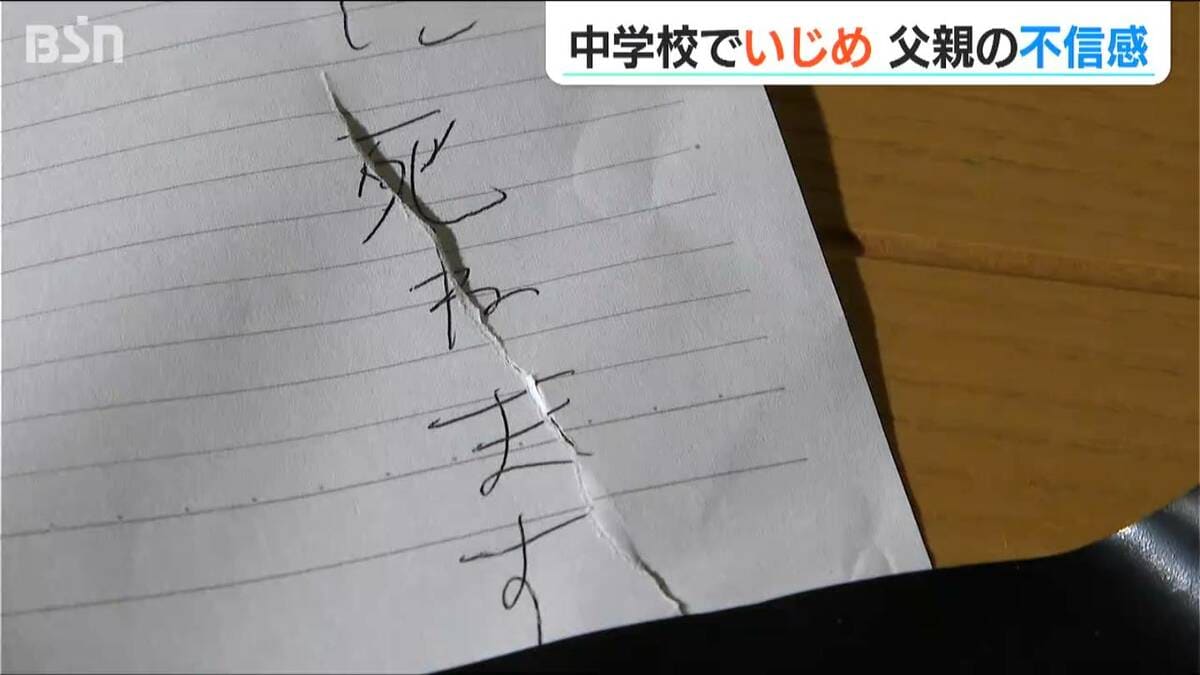 BSN
中学校でいじめ 父親の不信感
死ねます